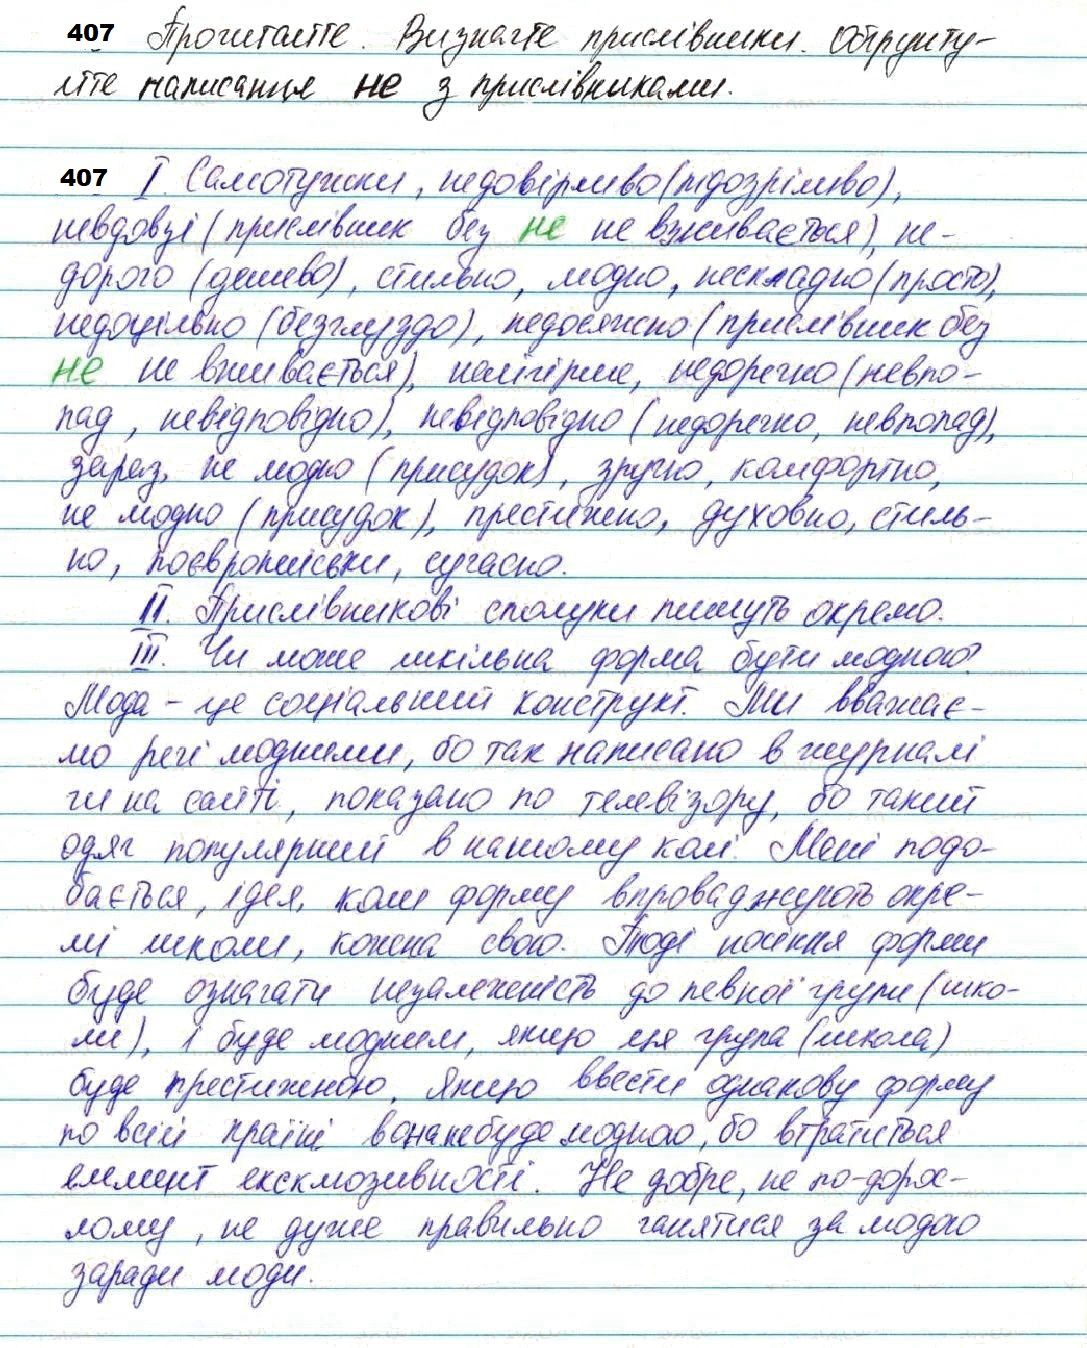 407 Прочитайте. Визначте прислівники. Обґрунту-
йте написання не з прислівниками.
407 І. Самотужки, недовірливо (підозріливо),
невдовзі (прислівник без не не вживається), не-
дорого (дешево), стильно, модно, нескладно (просто),
недоцільно (безглуздо), недосяжно (прислівник без
не не вживається), найгірше, недоречно (невпо-
пад, невідповідно), невідповідно (недоречно, невпопад),
зараз, не модно (присудок), зручно, комфортно,
не модно (присудок), престижно, духовно, стиль-
но, поєвропейськи, сучасно.
ІІ. Прислівникові сполуки пишуть окремо.
ІІІ. Чи може шкільна форма бути модною?
Мода - це соціальний конструкт. Ми вважає-
мо речі модними, бо так написано в журналі
чи на сайті, показано по телевізору, бо такий
одяг популярний в нашому колі. Мені подо-
бається, ідея, коли форму впроваджують окре-
мі школи, кожна свою. Тоді носіння форми
буде означати незалежність до певної групи (шко-
ли), і буде модним, якщо ця група (школа)
буде престижною. Якщо ввести однакову форму
по всій країні вона не буде модною, бо втратиться
елемент ексклюзивності. Не добре, не по-дорос-
лому, не дуже правильно ганятися за модою
заради моди.